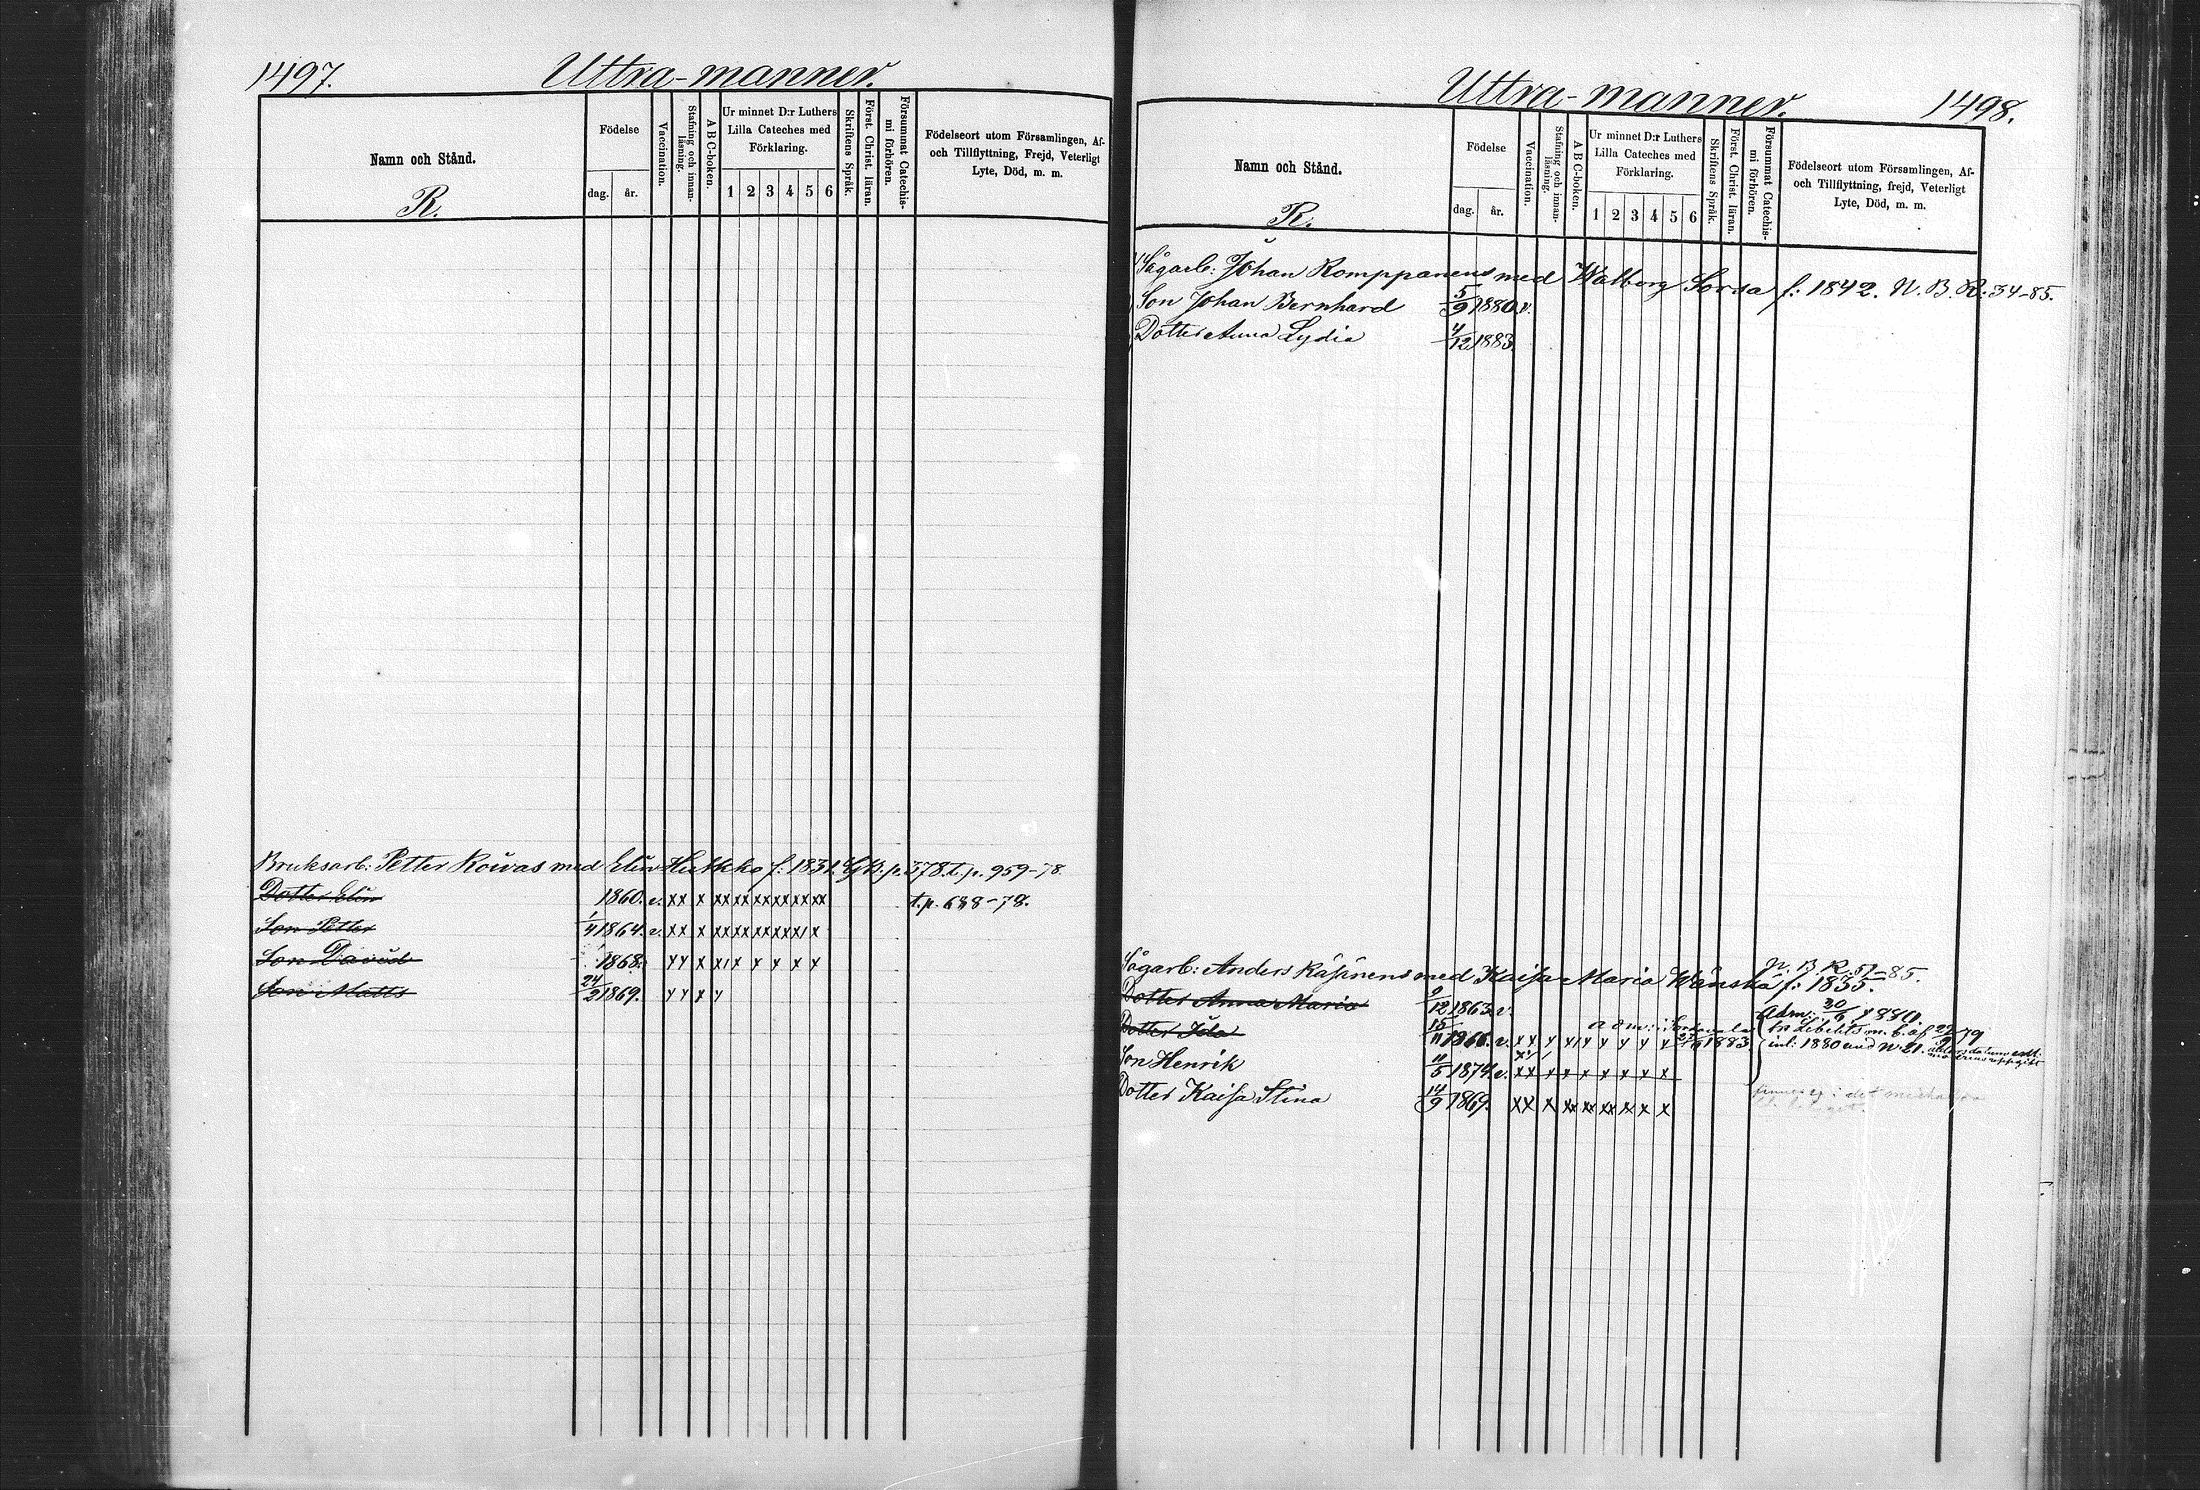 1497.
Uttra-manner.
Namn och Stånd.
R.
Födelse
dag. år.
Vaccination.
Stafning och innan-
läsning.
A B C-boken.
Ur minnet D:r Luthers
Lilla Cateches med
Förklaring.
1 2 3 4 5 6
Skriftens Språk.
Först. Christ. läran.
Försummat Catechis-
mi förhören.
Födelseort utom Församlingen, Af-
och Tillflyttning, Frejd, Veterligt
Lyte, Död, m. m.
Bruksarb: Petter Roivas med Elin Hukko f: 1831. p. 378. t. p. 959-78.
Dotter Elin 1860. v. xx x xx xx xx xx xx xx t. p. 688-78.
Son Petter 1/4 1864. v. xx x xx xx xx xx x x
Son David 1868. x x x x x x x x x
Son Matts 24/2 1869. x x x x
Uttra-manner.
1498.
Namn och Stånd.
R.
Födelse
dag. år.
Vaccination.
Stafning och innan-
läsning.
A B C-boken.
Ur minnet D:r Luthers
Lilla Cateches med
Förklaring.
1 2 3 4 5 6
Skriftens Språk.
Först. Christ. läran.
Försummat Catechis-
mi förhören.
Födelseort utom Församlingen, Af-
och Tillflyttning, frejd, Veterligt
Lyte, Död, m. m.
Sågarb: Johan Romppanens med Walborg Sorsa f: 1842. N. B. R: 34-85.
Son Johan Bernhard 5/9 1880. v.
Dotter Anna Lydia 4/12 1883.
N. B. R. 51-85.
Sågarb: Anders Räsänens med Kaisa Maria Wänskä f: 1835.
Dotter Anna Maria 9/12 1863. v. Adm: 30/6 1880.
Dotter Ida 15/11 1866. v. x x x x x x x x x 1883.
inl: 1880 und N. 21.
Son Henrik 11/5 1874. v. x x x x x x x x x
Dotter Kaisa Stina 14/9 1869. xx x xx xx xx x x x